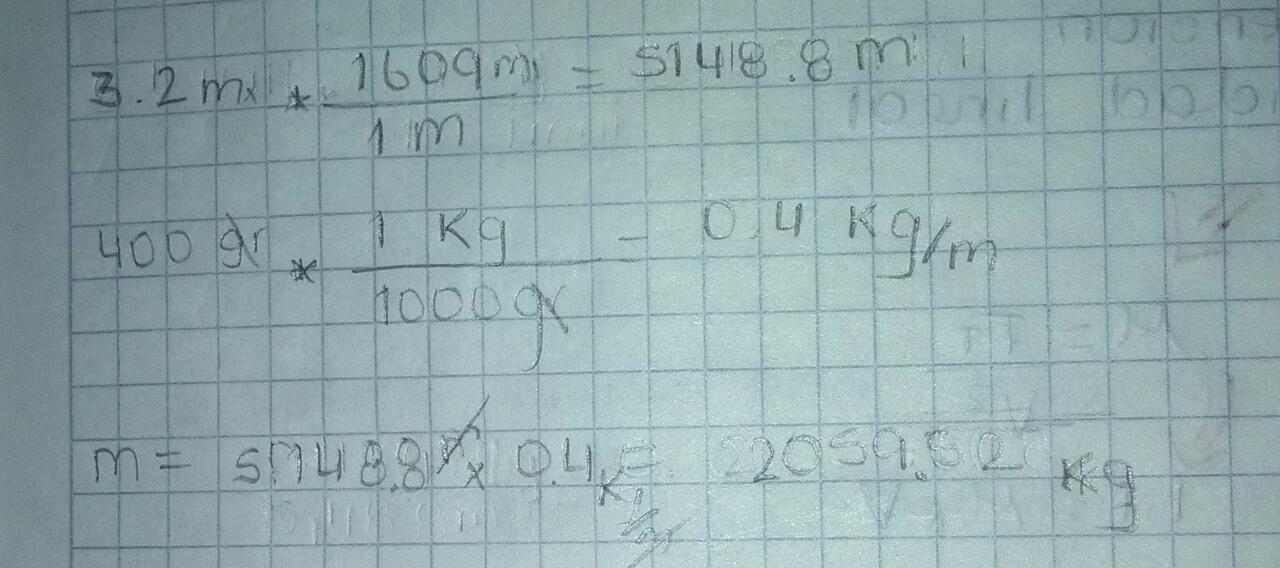 3.2 mi * 1609mi / 1 m = 51418.8 m
400 gr * 1 Kg / 1000gr = 0.4 Kg/m
m = 51148.8 x 0.4 K = 2059.52 Kg